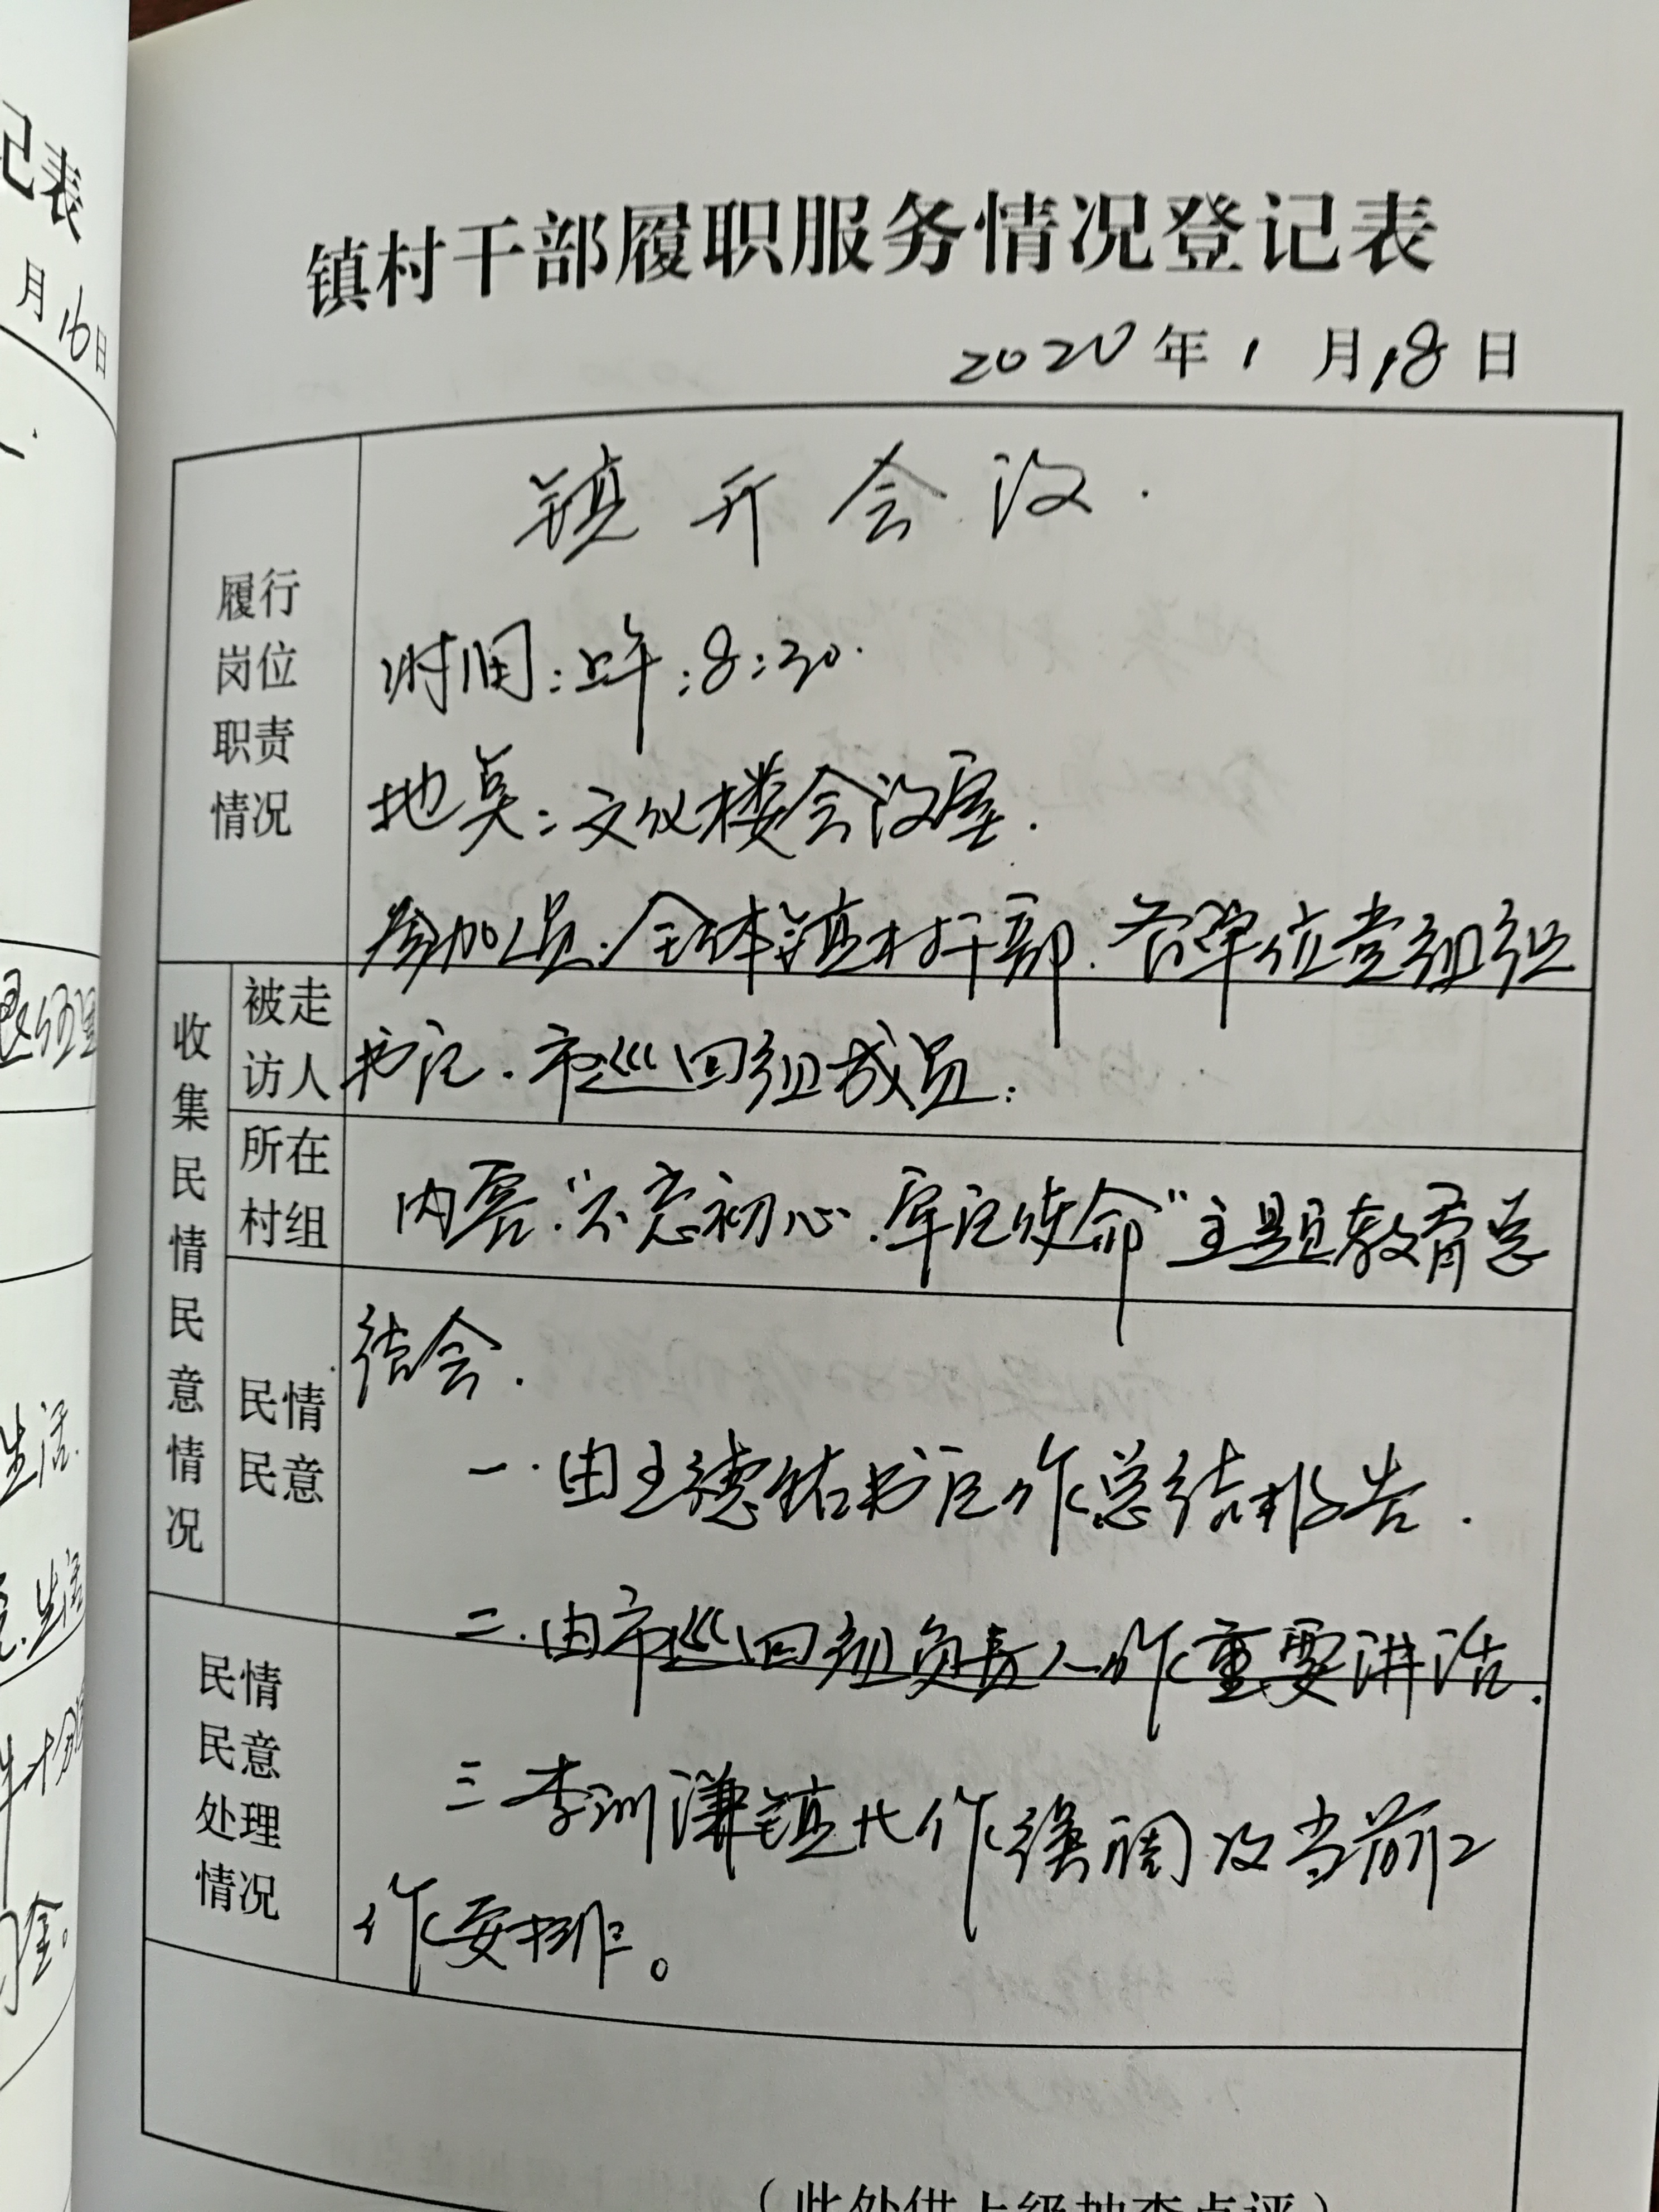 记表
月16日
镇村干部履职服务情况登记表
2020年1月18日
履行
岗位
职责
情况
镇开会议.
时间:上午:8:30.
地点:文化楼会议室.
参加人员:全体镇村干部.各单位党组织
收集民情民意情况
被走
访人
书记.市巡回组成员:
所在
村组
内容:“不忘初心.牢记使命”主题教育总
民情
民意
结会.
一.由王德铭书记作总结报告.
二.由市巡回组负责人作重要讲话.
民情
民意
处理
情况
三李训谦镇长作强调及当前工
作安排。
(此处供上级抽查点评)
生活.
生活
金。